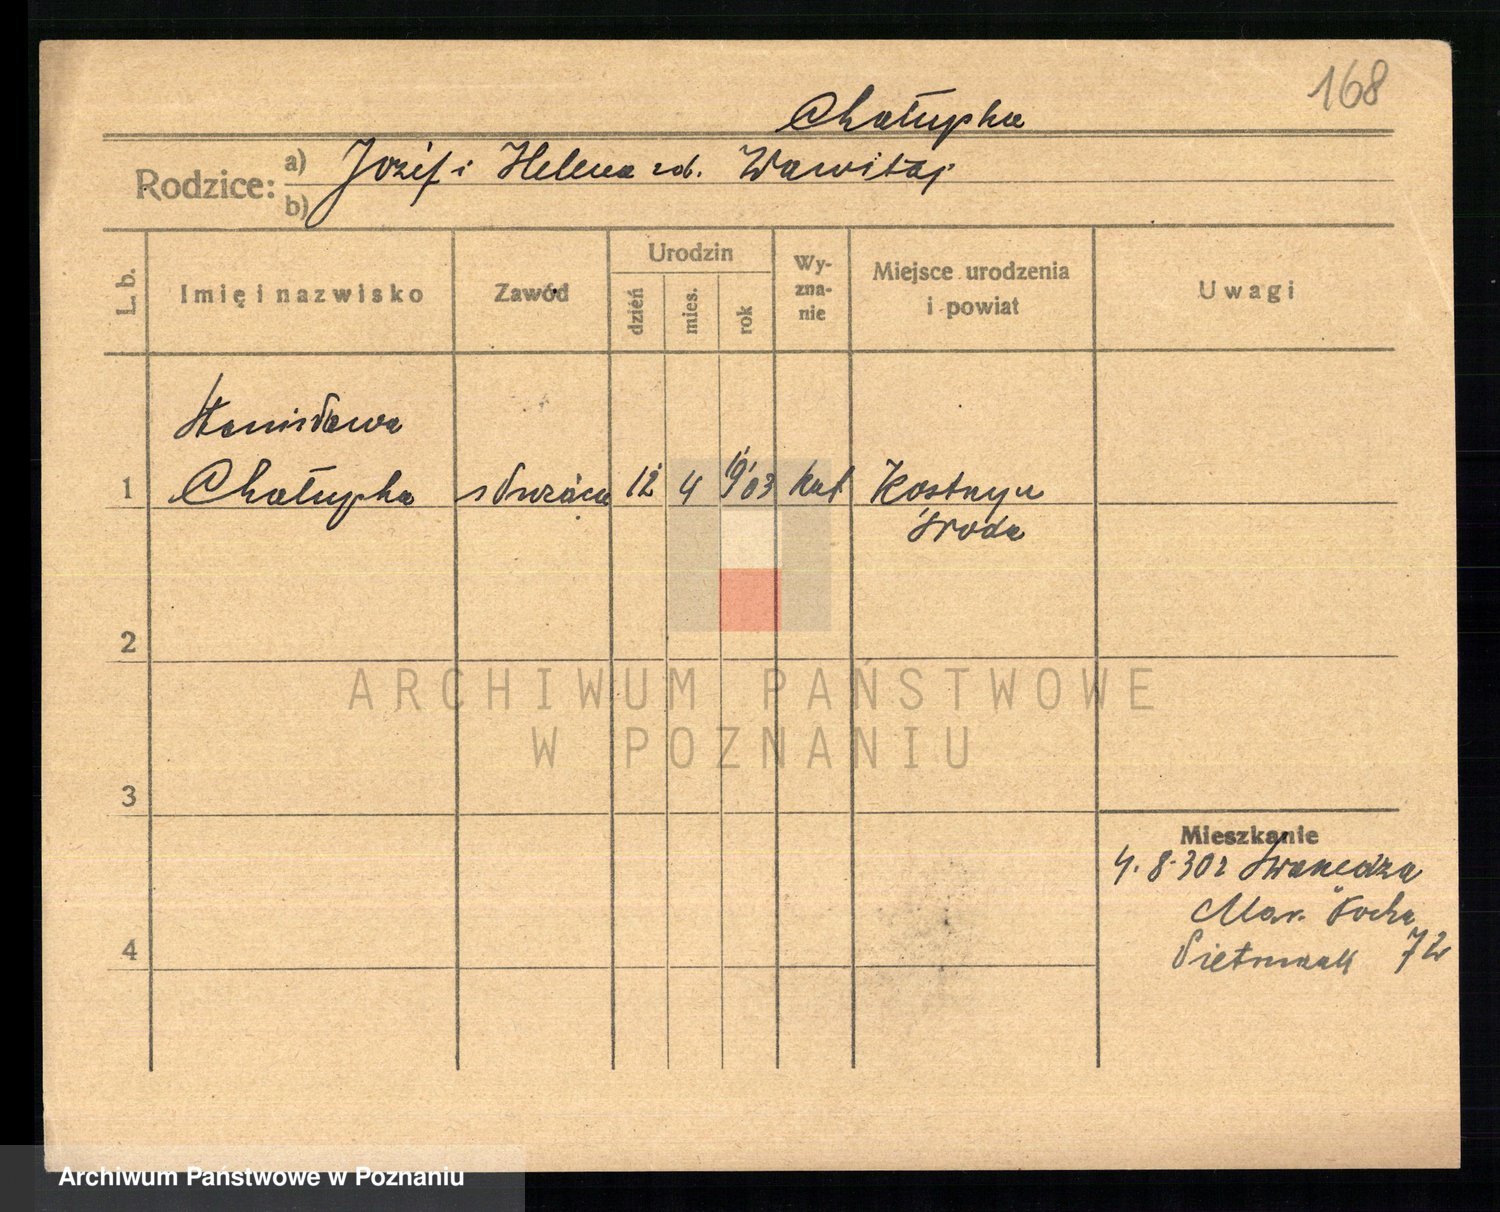 168
Chałupka
Rodzice: a) Józef i Helena zd. Wawitaj
b)
L. b. Imię i nazwisko Zawód Urodzin dzień mies. rok Wy-zna-nie Miejsce urodzenia i powiat Uwagi
Stanisława
1 Chałupka służąca 12 4 1903 kat Kostrzyn
Środa
2
ARCHIWUM PAŃSTWOWE
W POZNANIU
3
Mieszkanie
4. 8. 30 r Swarzędza
Mar. Focha
4
72
Archiwum Państwowe w Poznaniu